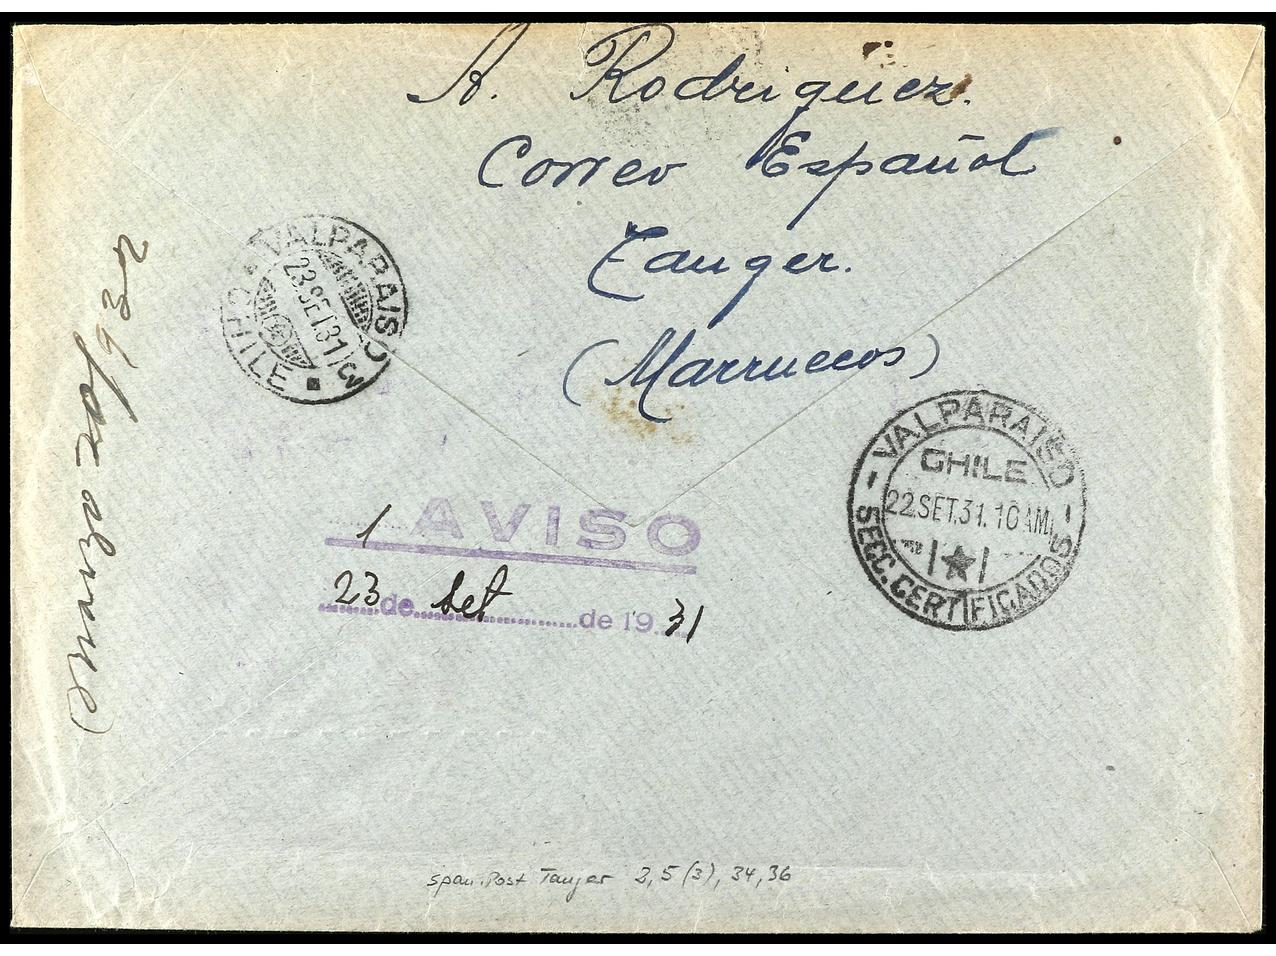 A. Rodriguez.
Correo Español
Tanger.
(Marruecos)
VALPARAISO
CHILE
23.SET.31
VALPARAISO
CHILE
22.SET.31. 10 AM.
SECC. CERTIFICADOS
1 AVISO
23 de Set de 1931
Marzo 20/932
span. Post Tanger 2, 5 (3), 34, 36